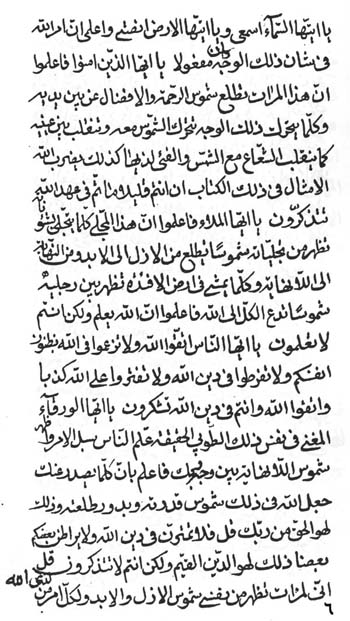 يا ايتها السمآء اسمعي ويا ايتها الارض انصتي واعلمي ان امر الله
في شان ذلك الوجه كان مفعولا يا ايها الذين امنوا فاعلموا
ان هذا المرات يطلع شموس الرحمة والافضال عن بين يديه
وكلما يتحرك ذلك الوجه تتحرك الشموس معه وتنقلب بين عينيه
كما ينقلب الشعاع مع الشمس والفئ لدنها كذلك يضرب الله
الامثال في ذلك الكتاب ان انتم قليلا ما انتم في عهد الله
تتذكرون يا ايها الملاء فاعلموا ان هذا المجلي كلما يتجلى بشئ
تظهر من تجلياته شموسا يطلع من الازل الى الابد ومن النهاية
الى اللانهاية وكلما يمشي في ارض الافئدة تظهر بين رجليه
شموسا تدع الكل الى الله فاعلموا ان الله يعلم ولكن انتم
لا تعلمون يا ايها الناس اتقوا الله ولا تزعوا في الله بظنون
انفسكم ولا تفرطوا في دين الله ولا تفتروا على الله كذبا
واتقوا الله وانتم في دين الله تشكرون يا ايها الورقآء
المغني في نفس ذلك الطور الحقيقة علم الناس سبل الامر واظهر
شموس اللانهاية بين وجهك فاعلم بان كلما يصدر منك
جعل الله في ذلك شموس قدرته وبدور طلعته وذلك
لهو الحق من ربك قل فلا تمترون في دين الله ولا يراطن بعضكم
بعضا ذلك لهو الدين القيم ولكن انتم لا تتذكرون قل
اني لمرات تظهر من نفسي شموس الازل والابد ولكل امر من
٦